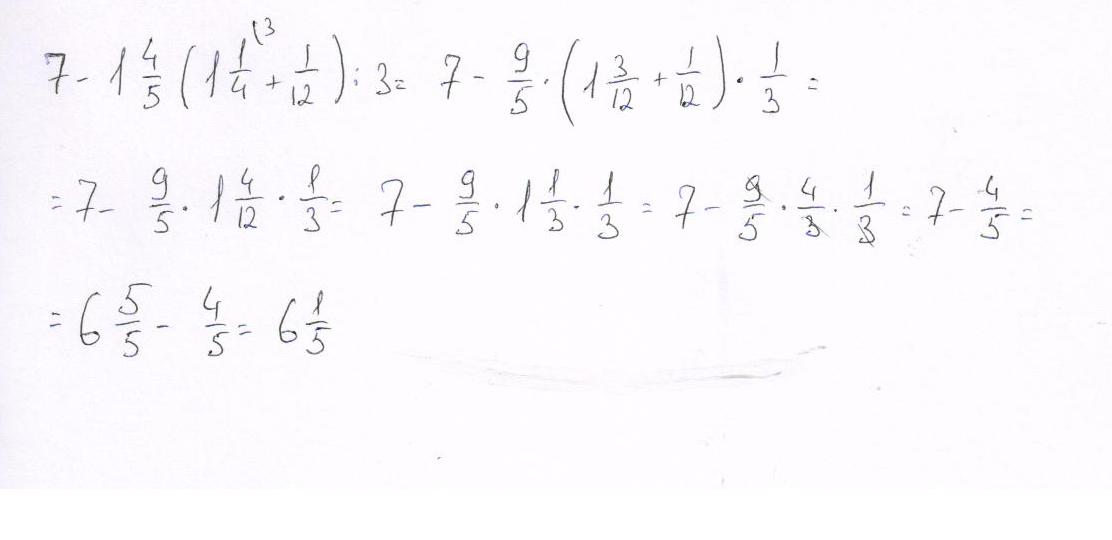 7 - 1 4/5 (1 1/4 (3 + 1/12) : 3 = 7 - 9/5 · (1 3/12 + 1/12) · 1/3 =
= 7 - 9/5 · 1 4/12 · 1/3 = 7 - 9/5 · 1 1/3 · 1/3 = 7 - 9/5 · 4/3 · 1/3 = 7 - 4/5 =
= 6 5/5 - 4/5 = 6 1/5